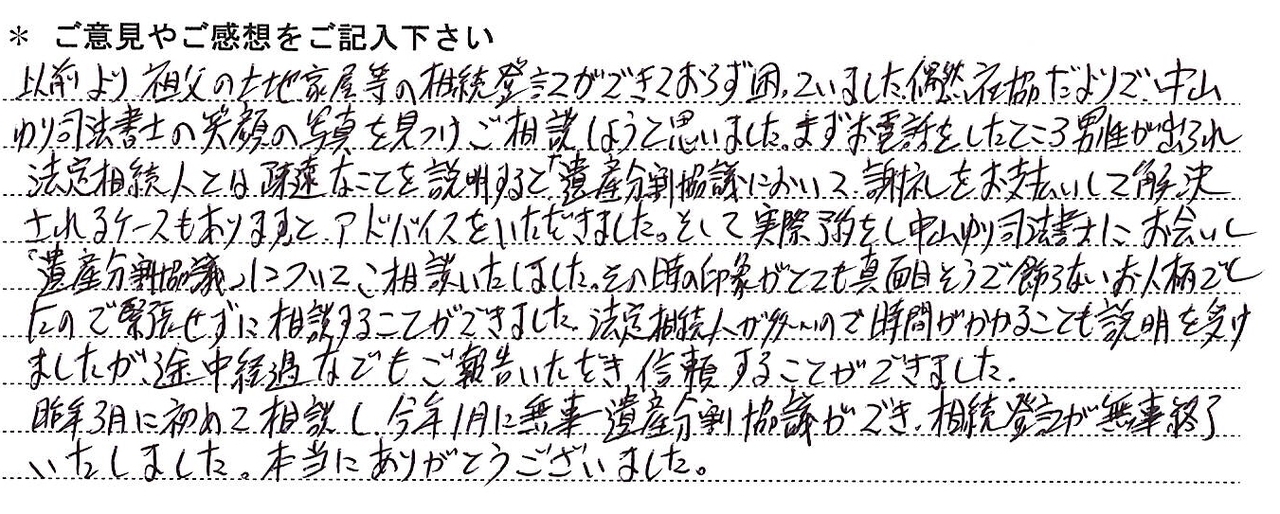 * ご意見やご感想をご記入下さい
以前より祖父の土地家屋等の相続登記ができておらず困っていました。偶然社協だよりで、中山
ゆり司法書士の笑顔の写真を見つけご相談しようと思いました。まずお電話をしたところ男性が出られ
法定相続人とは疎遠なことを説明すると「遺産分割協議において謝礼をお支払いして解決
されるケースもあります」と、アドバイスをいただきました。そして実際予約をし中山ゆり司法書士にお会いし
「遺産分割協議」についてご相談いたしました。その時の印象がとても真面目そうで飾らないお人柄でし
たので緊張せずに相談することができました。法定相続人が多いので時間がかかることも説明を受け
ましたが、途中経過などもご報告いただき信頼することができました。
昨年3月に初めて相談し今年1月に無事遺産分割協議ができ、相続登記が無事終了
いたしました。本当にありがとうございました。